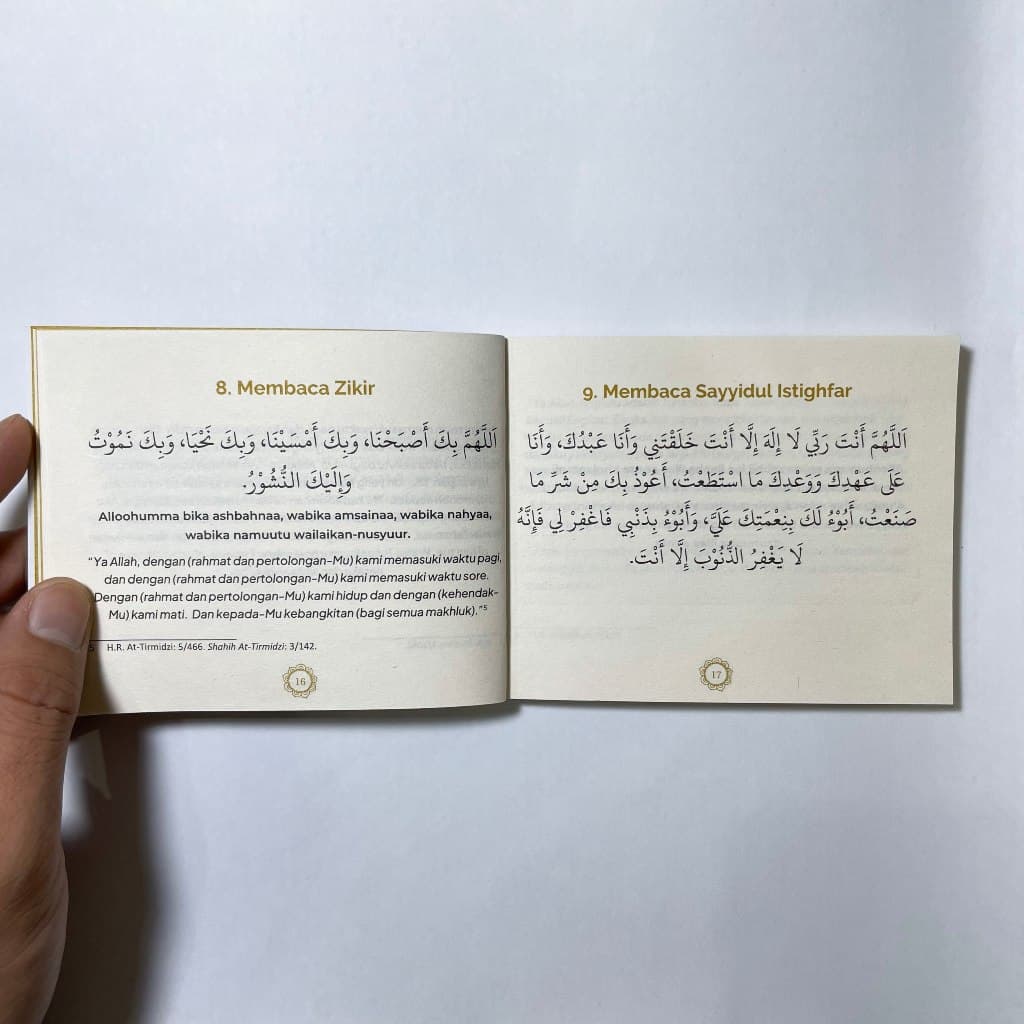 8. Membaca Zikir
اَللَّهُمَّ بِكَ أَصْبَحْنَا، وَبِكَ أَمْسَيْنَا، وَبِكَ نَحْيَا، وَبِكَ نَمُوْتُ
وَإِلَيْكَ النُّشُوْرُ.
Alloohumma bika ashbahnaa, wabika amsainaa, wabika nahyaa,
wabika namuutu wailaikan-nusyuur.
"Ya Allah, dengan (rahmat dan pertolongan-Mu) kami memasuki waktu pagi,
dan dengan (rahmat dan pertolongan-Mu) kami memasuki waktu sore.
Dengan (rahmat dan pertolongan-Mu) kami hidup dan dengan (kehendak-
Mu) kami mati. Dan kepada-Mu kebangkitan (bagi semua makhluk)."5
5 H.R. At-Tirmidzi: 5/466. Shahih At-Tirmidzi: 3/142.
16
9. Membaca Sayyidul Istighfar
اَللَّهُمَّ أَنْتَ رَبِّي لَا إِلَهَ إِلَّا أَنْتَ خَلَقْتَنِي وَأَنَا عَبْدُكَ، وَأَنَا
عَلَى عَهْدِكَ وَوَعْدِكَ مَا اسْتَطَعْتُ، أَعُوْذُ بِكَ مِنْ شَرِّ مَا
صَنَعْتُ، أَبُوْءُ لَكَ بِنِعْمَتِكَ عَلَيَّ، وَأَبُوْءُ بِذَنْبِي فَاغْفِرْ لِي فَإِنَّهُ
لَا يَغْفِرُ الذُّنُوْبَ إِلَّا أَنْتَ.
17